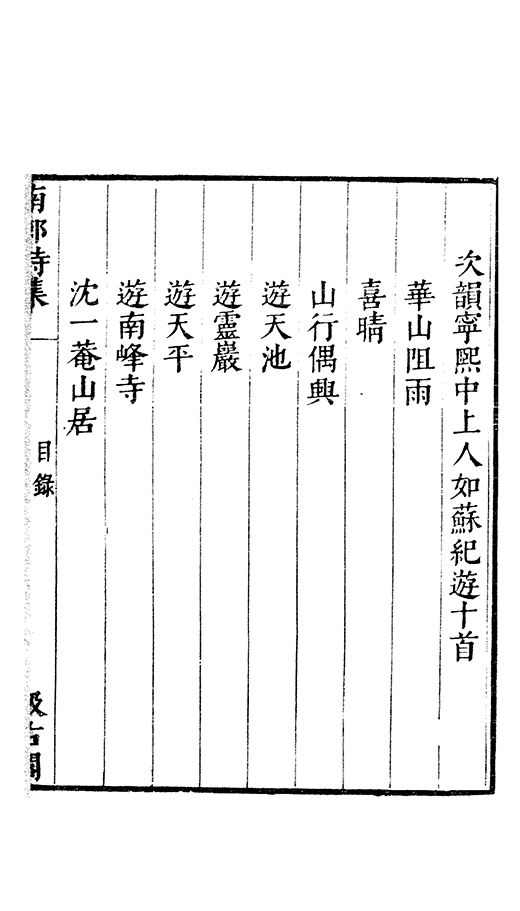 次韻寧熙中上人如蘇紀遊十首
華山阻雨
喜晴
山行偶興
遊天池
遊靈巖
遊天平
遊南峰寺
沈一菴山居
南邨詩集
目錄
汲古閣